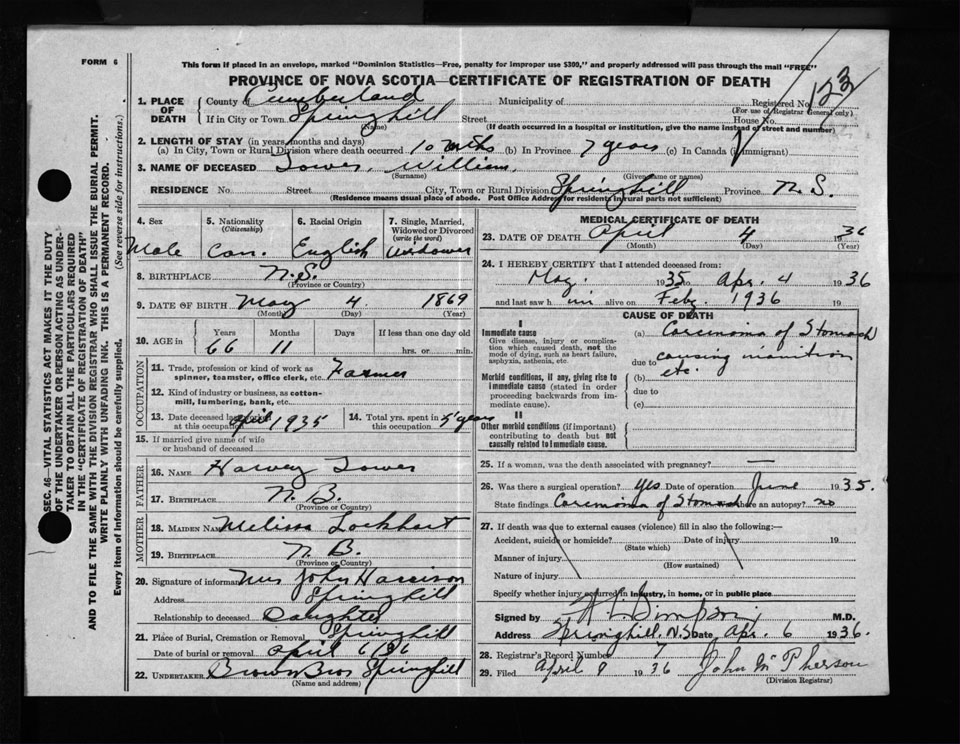 FORM 6
This form if placed in an envelope, marked "Dominion Statistics—Free, penalty for improper use $300," and properly addressed will pass through the mail "FREE"
PROVINCE OF NOVA SCOTIA—CERTIFICATE OF REGISTRATION OF DEATH
123
1. PLACE OF DEATH
County of Cumberland
Municipality of
Registered No.
(For use of Registrar General only)
If in City or Town Springhill Street House No.
(Name) (If death occurred in a hospital or institution, give the name instead of street and number)
2. LENGTH OF STAY (in years, months and days)
(a) In City, Town or Rural Division where death occurred 10 mths (b) In Province 7 years (c) In Canada (if immigrant)
3. NAME OF DECEASED Tower, William,
(Surname) (Given name or names)
RESIDENCE No. Street City, Town or Rural Division Springhill Province N.S.
(Residence means usual place of abode. Post Office Address for residents in rural parts not sufficient)
4. Sex
Male
5. Nationality
(Citizenship)
Can.
6. Racial Origin
English
7. Single, Married, Widowed or Divorced
(write the word)
Widower
8. BIRTHPLACE N.S.
(Province or Country)
9. DATE OF BIRTH May 4. 1869
(Month) (Day) (Year)
10. AGE in
Years Months Days If less than one day old
66 11 hrs. or min.
OCCUPATION
11. Trade, profession or kind of work as
spinner, teamster, office clerk, etc. Farmer
12. Kind of industry or business, as cotton-
mill, lumbering, bank, etc.
13. Date deceased last worked
at this occupation April 1935
14. Total yrs. spent in
this occupation 5 years
15. If married give name of wife
or husband of deceased
FATHER
16. NAME Harvey Tower
17. BIRTHPLACE N.B.
(Province or Country)
MOTHER
18. MAIDEN NAME Melissa Lockhart
19. BIRTHPLACE N.B.
(Province or Country)
20. Signature of informant Mrs John Harrison
Address Springhill
Relationship to deceased Daughter
21. Place of Burial, Cremation or Removal Springhill
Date of burial or removal April 6/36
22. UNDERTAKER Brown Bros Springhill
(Name and address)
MEDICAL CERTIFICATE OF DEATH
23. DATE OF DEATH April 4 1936
(Month) (Day) (Year)
24. I HEREBY CERTIFY that I attended deceased from:
May. 1935 to Apr. 4 1936
and last saw h im alive on Feby. 1936 19
CAUSE OF DEATH
I
Immediate cause
Give disease, injury or complication which caused death, not the mode of dying, such as heart failure, asphyxia, asthenia, etc.
(a) Carcinoma of Stomach
due to causing inanition
etc.
Morbid conditions, if any, giving rise to immediate cause (stated in order proceeding backwards from immediate cause).
(b)
due to
(c)
II
Other morbid conditions (if important) contributing to death but not causally related to immediate cause.
25. If a woman, was the death associated with pregnancy? —
26. Was there a surgical operation? Yes Date of operation June 1935.
State findings Carcinoma of Stomach Was there an autopsy? no
27. If death was due to external causes (violence) fill in also the following:—
Accident, suicide or homicide? Date of injury 19
(State which)
Manner of injury
(How sustained)
Nature of injury
Specify whether injury occurred in industry, in home, or in public place
Signed by M.D.
Address Springhill. N.S. Date Apr. 6 1936.
28. Registrar's Record Number 7
29. Filed April 8 1936 John McPherson
(Division Registrar)
SEC. 46—VITAL STATISTICS ACT MAKES IT THE DUTY
OF THE UNDERTAKER OR PERSON ACTING AS UNDER-
TAKER TO OBTAIN ALL THE PARTICULARS REQUIRED
IN THE "CERTIFICATE OF REGISTRATION OF DEATH"
AND TO FILE THE SAME WITH THE DIVISION REGISTRAR WHO SHALL ISSUE THE BURIAL PERMIT.
WRITE PLAINLY WITH UNFADING INK. THIS IS A PERMANENT RECORD.
Every item of information should be carefully supplied. (See reverse side for instructions.)